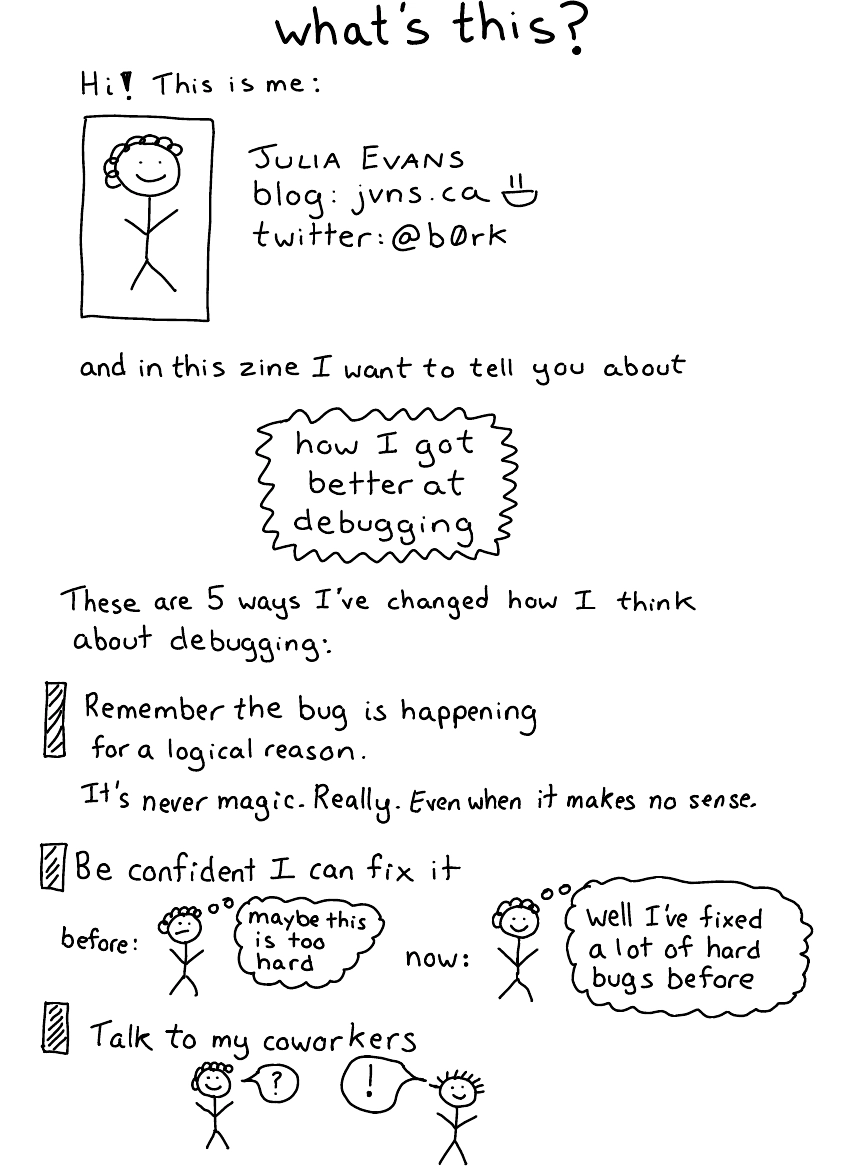 what's this?
Hi! This is me:
JULIA EVANS
blog: jvns.ca
twitter: @b0rk
and in this zine I want to tell you about
how I got
better at
debugging
These are 5 ways I've changed how I think
about debugging:
Remember the bug is happening
for a logical reason.
It's never magic. Really. Even when it makes no sense.
Be confident I can fix it
before:
maybe this
is too
hard
now:
well I've fixed
a lot of hard
bugs before
Talk to my coworkers
?
!